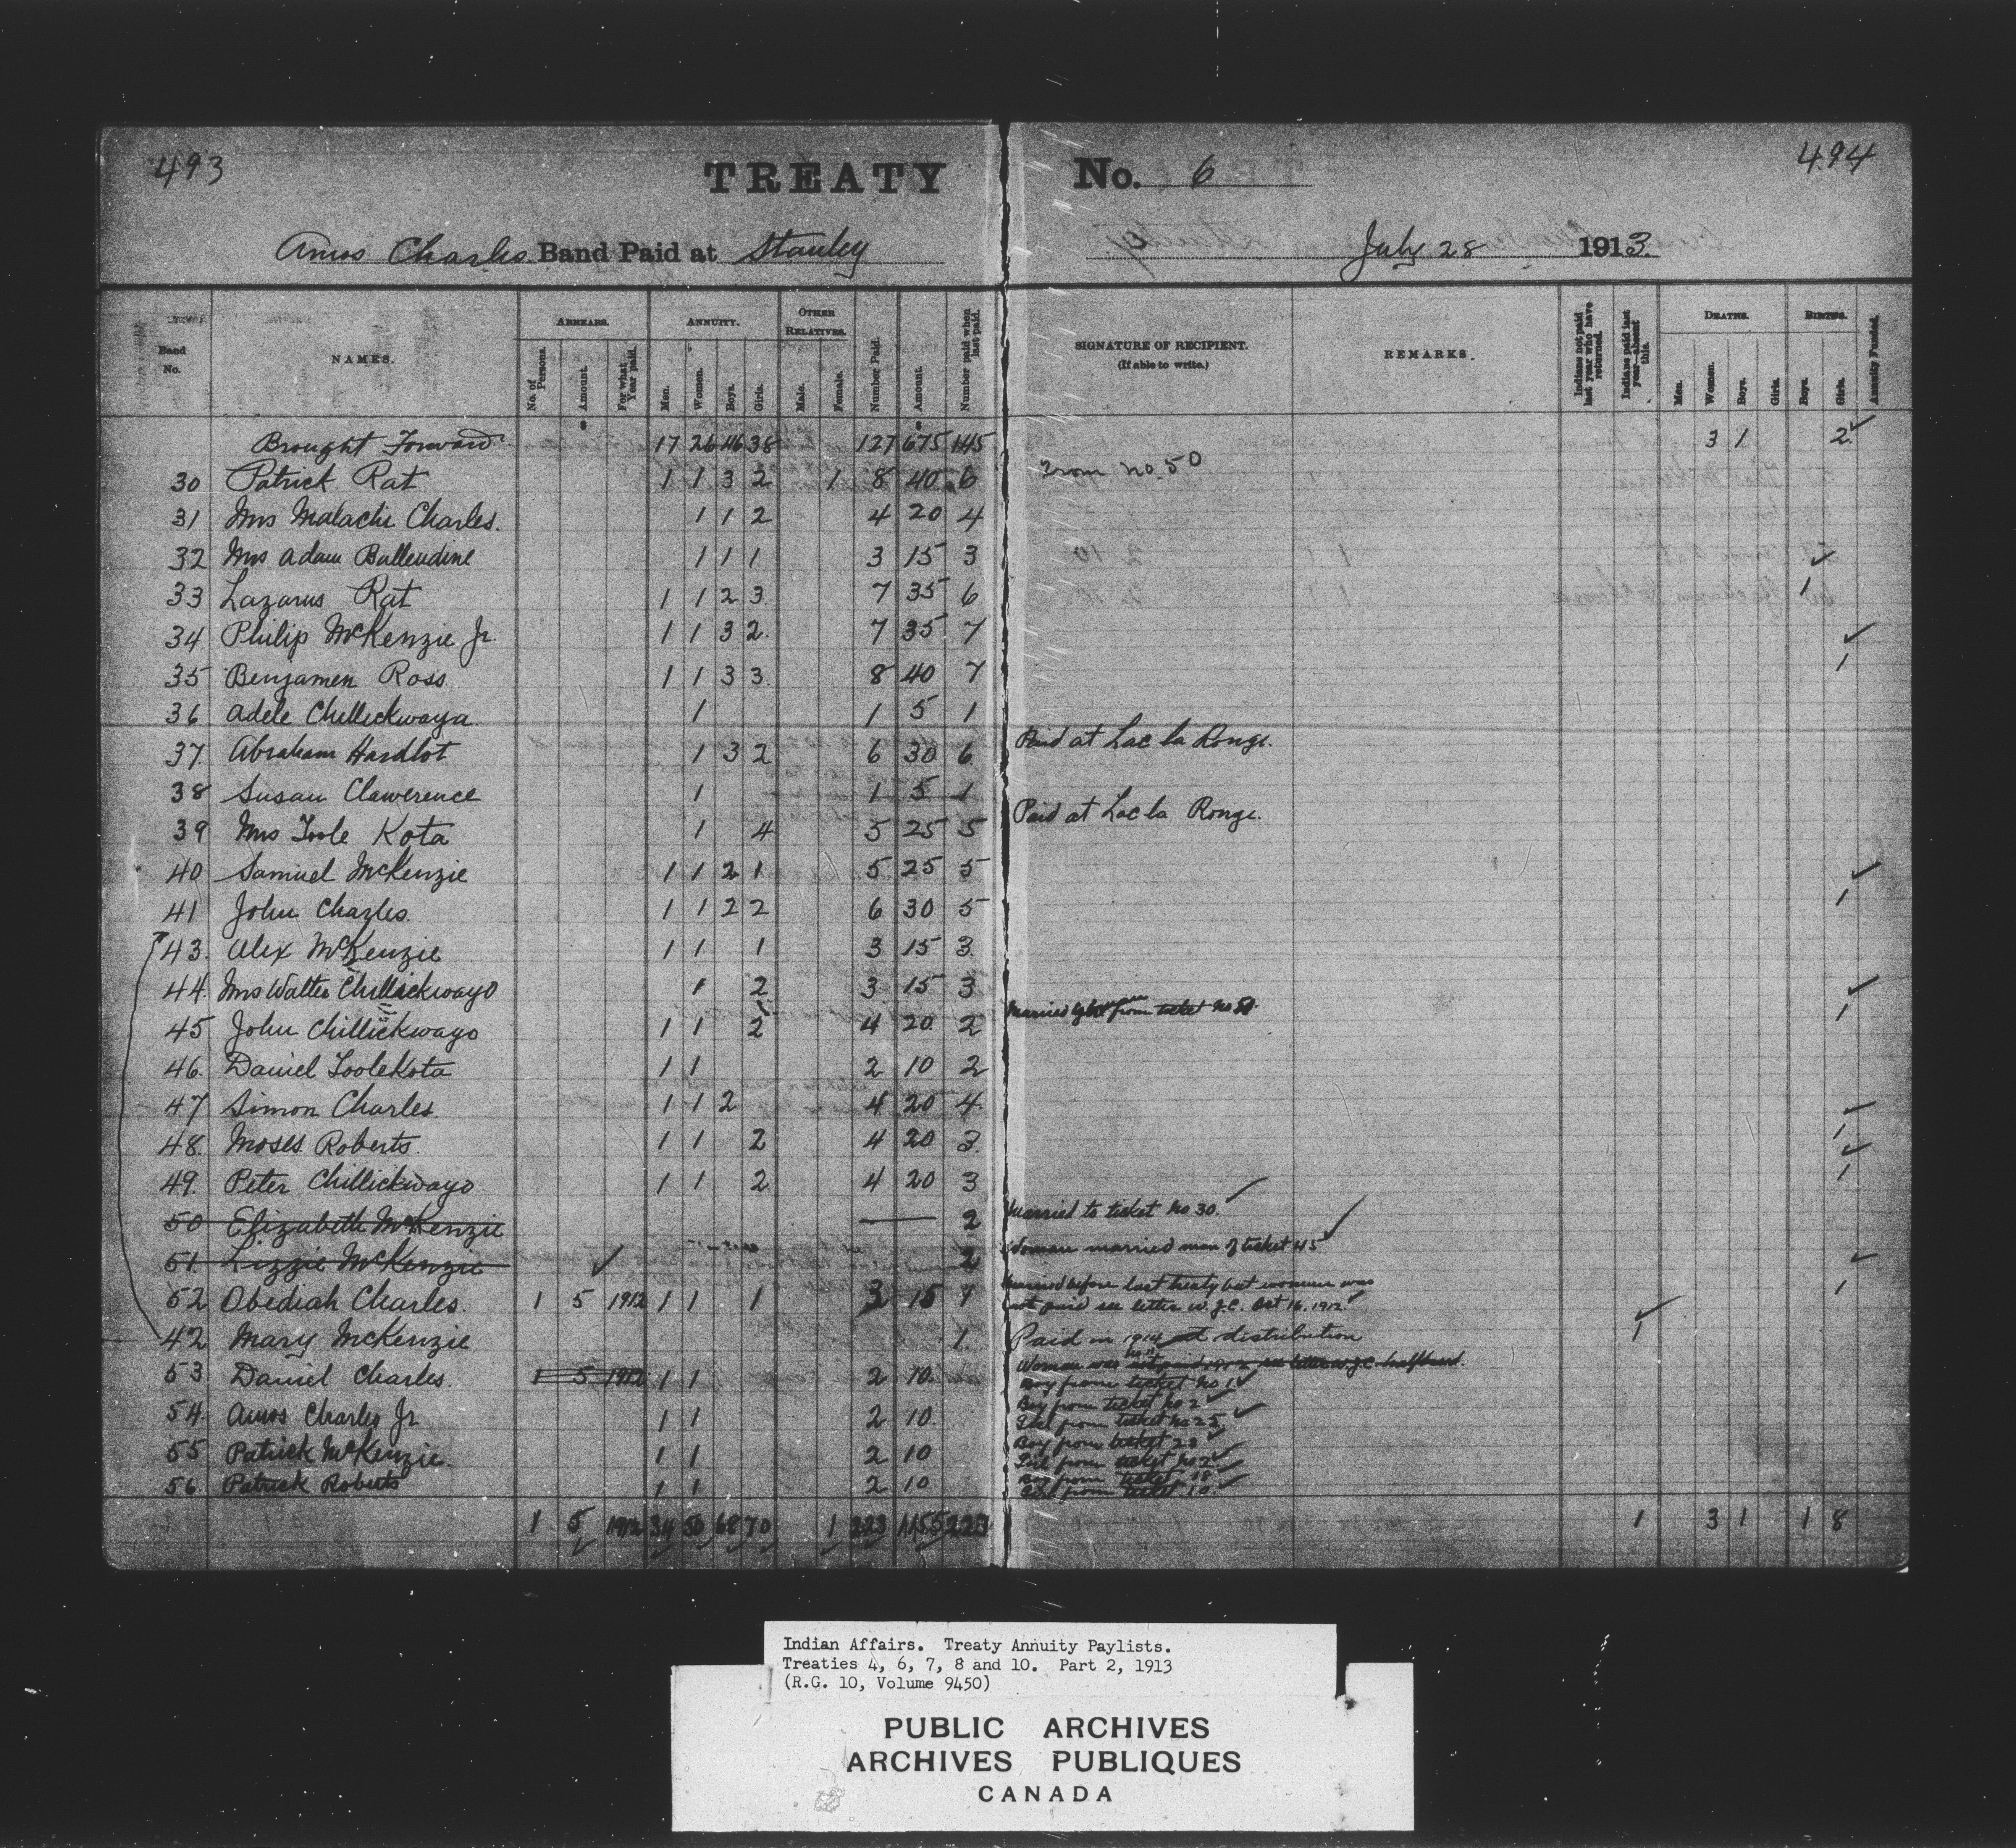 493
TREATY No. 6
494
Amos Charles Band Paid at Stanley July 28 1913.
Band No.
NAMES.
ARREARS.
No. of Persons.
Amount.
For what Year paid.
ANNUITY.
Men.
Women.
Boys.
Girls.
OTHER RELATIVES.
Male.
Female.
Number Paid.
Amount.
Number paid when last paid.
SIGNATURE OF RECIPIENT.
(If able to write.)
REMARKS.
Indians not paid last year who have returned.
Indians paid last year—absent this.
DEATHS.
Men.
Women.
Boys.
Girls.
BIRTHS.
Boys.
Girls.
Annuity Funded.
Brought Forward 17 26 46 38 127 675 145 3 1 2
30 Patrick Rat 1 1 3 2 1 8 40 6 From no. 50
31 Mrs Malachi Charles. 1 1 2 4 20 4
32 Mrs Adam Ballendine 1 1 1 3 15 3
33 Lazarus Rat 1 1 2 3 7 35 6 1
34 Philip McKenzie Jr 1 1 3 2 7 35 7
35 Benjamen Ross 1 1 3 3 8 40 7 1
36 Adele Chillickwaya 1 1 5 1
37 Abraham Hardlot 1 3 2 6 30 6 Paid at Lac la Ronge.
38 Susan Clawerence 1 1 5 1
39 Mrs Toole Kota 1 4 5 25 5 Paid at Lac la Ronge.
40 Samuel McKenzie 1 1 2 1 5 25 5
41 John Charles 1 1 2 2 6 30 5 1
43 Alex McKenzie 1 1 1 3 15 3
44 Mrs Walter Chillickwayo 1 2 3 15 3
45 John Chillickwayo 1 1 2 4 20 2 Married from ticket no 1
46 Daniel Toolekota 1 1 2 10 2
47 Simon Charles 1 1 2 4 20 4
48 Moses Roberts 1 1 2 4 20 3 1
49 Peter Chillickwayo 1 1 2 4 20 3 1
50 Elizabeth McKenzie 2 Married to ticket no 30.
51 Lizzie McKenzie 2 Woman married man of ticket 45
52 Obediah Charles 1 5 1912 1 1 1 3 15 1 Married before last treaty but woman was 1
not paid see letter W.J.C. Oct 16, 1912
42 Mary McKenzie 1 Paid in 1914 at distribution 1
Woman was not paid see letter W.J.C. halfbreed.
53 Daniel Charles 1 5 1912 1 1 2 10 Boy from ticket no 1
54 Amos Charles Jr 1 1 2 10 Boy from ticket no 2
Girl from ticket no 25
55 Patrick McKenzie 1 1 2 10 Boy from ticket 23
Girl from ticket no 2
56 Patrick Roberts 1 1 2 10 Boy from ticket 18
Girl from ticket 10
1 5 1912 34 50 68 70 1 223 1155 223 1 3 1 1 8
Indian Affairs. Treaty Annuity Paylists.
Treaties 4, 6, 7, 8 and 10. Part 2, 1913
(R.G. 10, Volume 9450)
PUBLIC ARCHIVES
ARCHIVES PUBLIQUES
CANADA